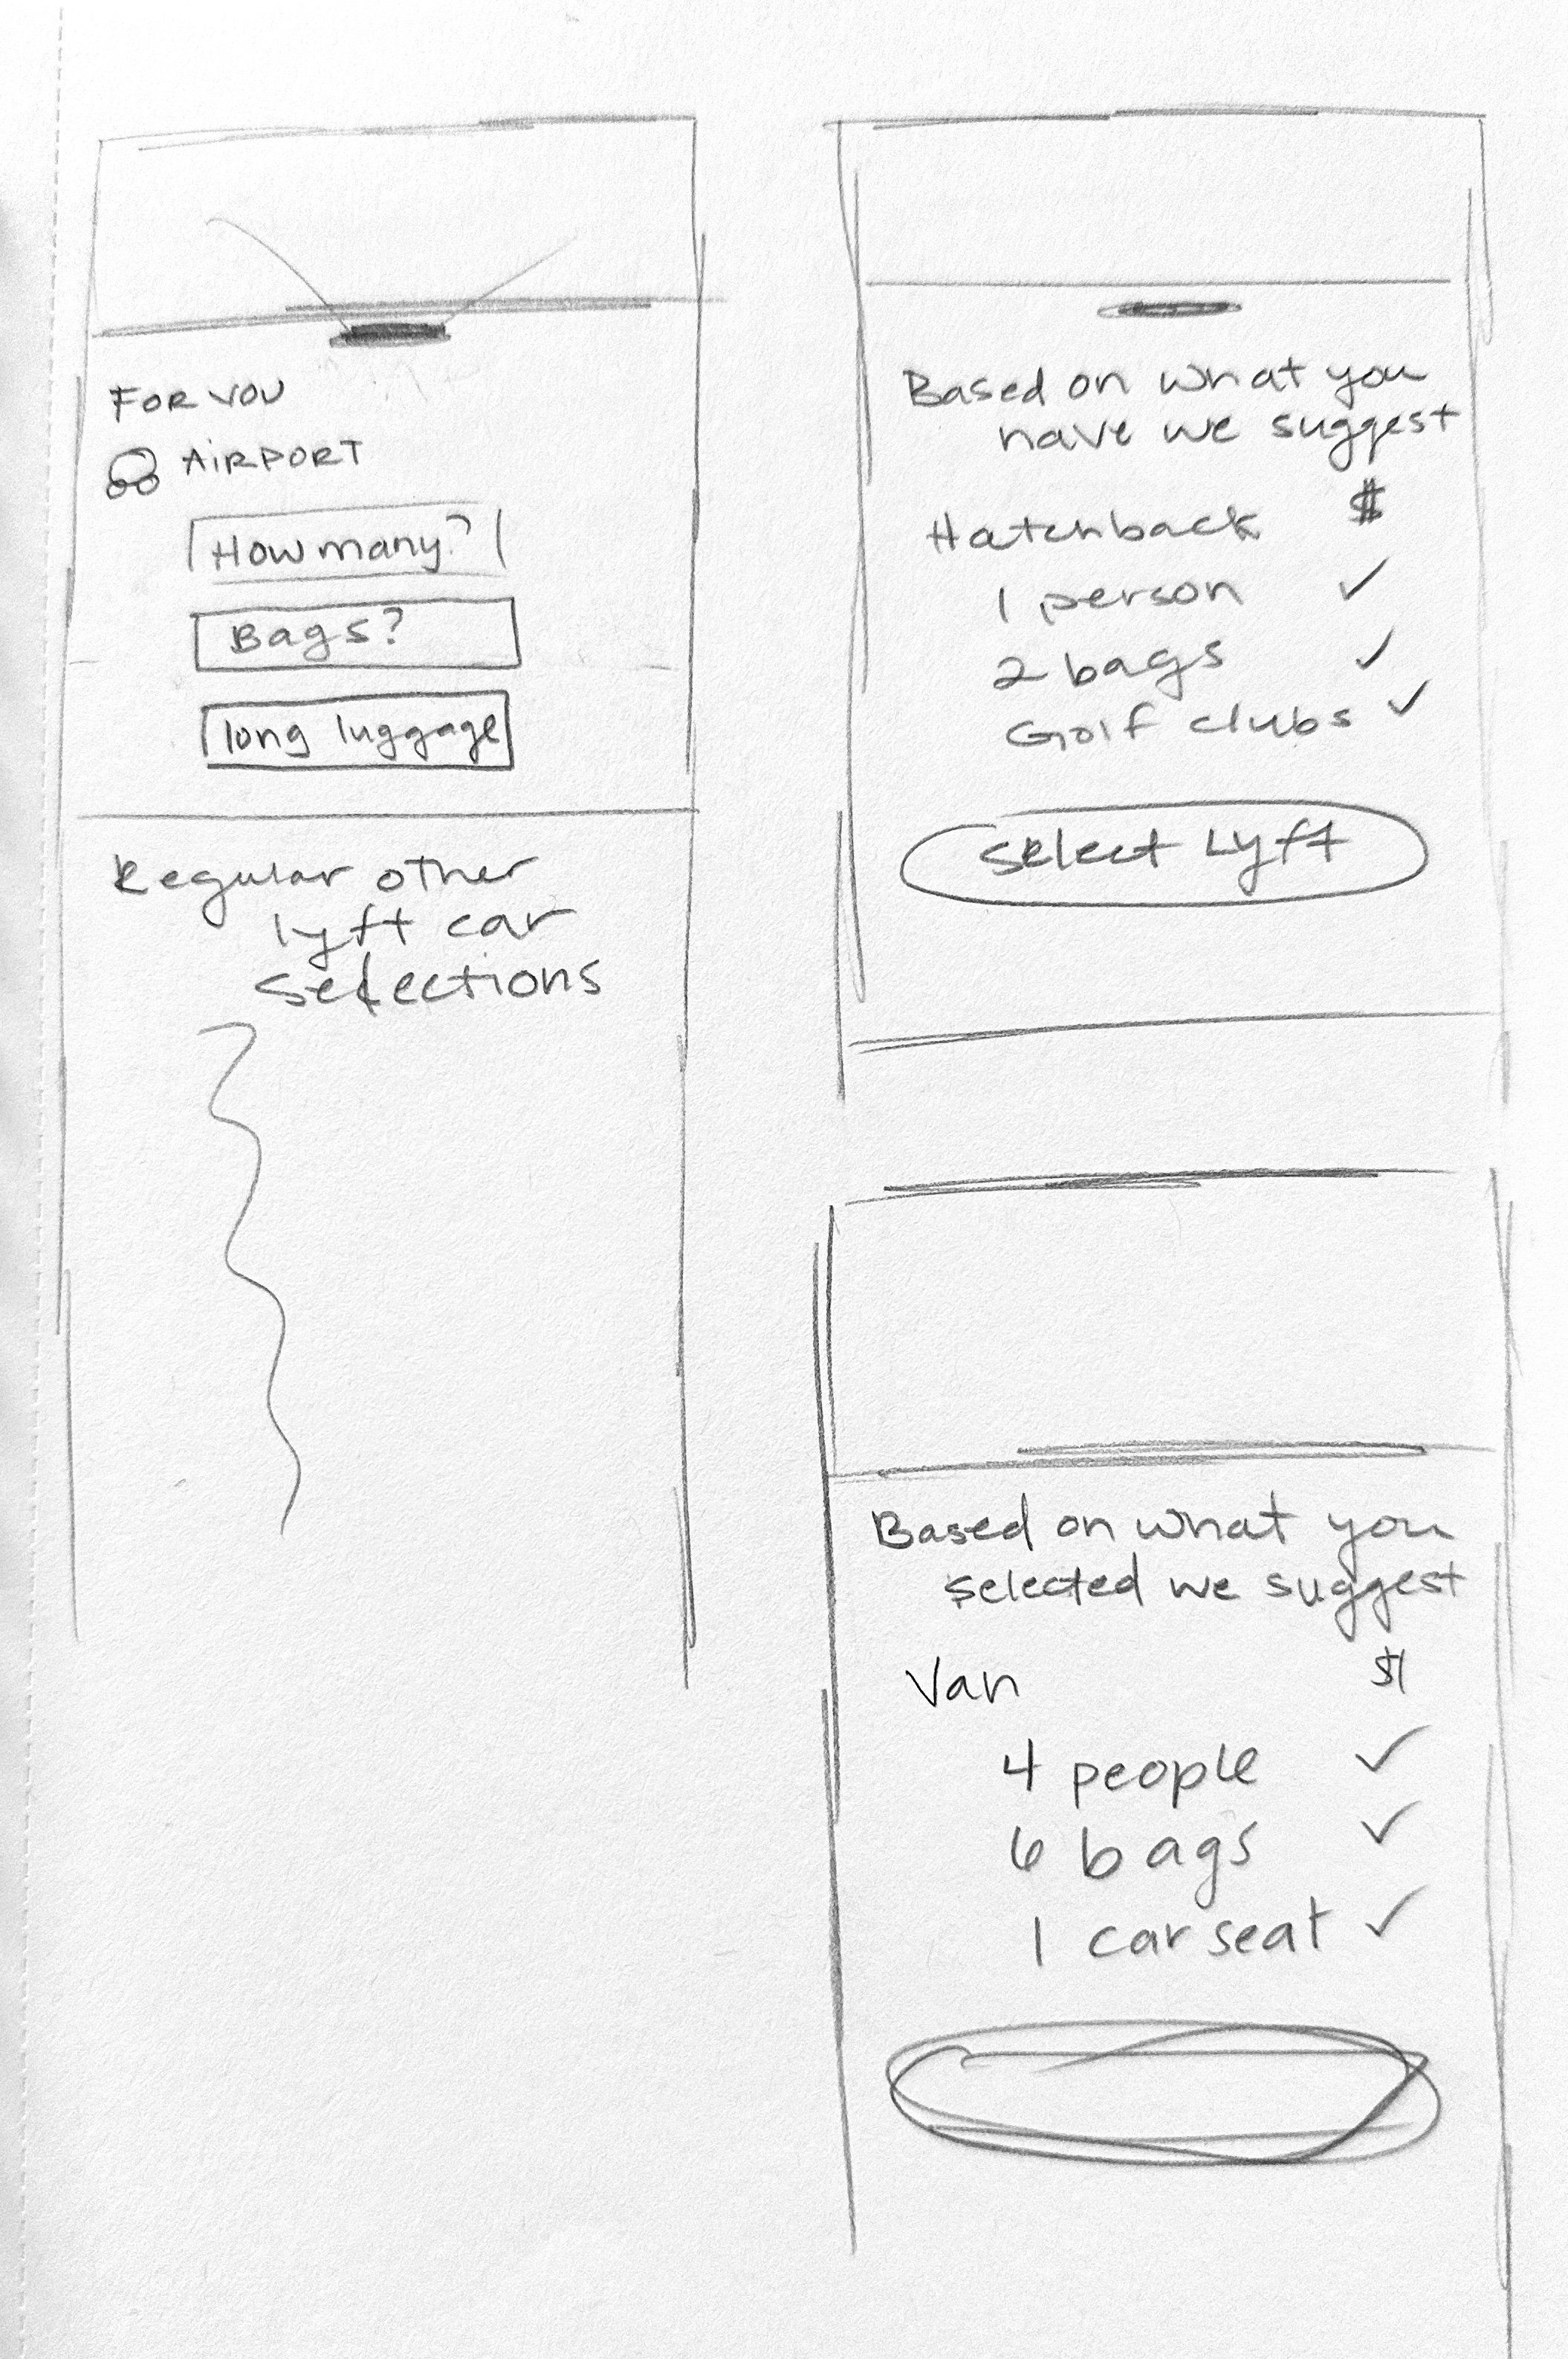 FOR YOU
AIRPORT
How many?
Bags?
long luggage
Regular other
lyft car
selections
Based on what you
have we suggest
Hatchback $
1 person ✓
2 bags ✓
Golf clubs ✓
Select Lyft
Based on what you
selected we suggest
Van $
4 people ✓
6 bags ✓
1 car seat ✓